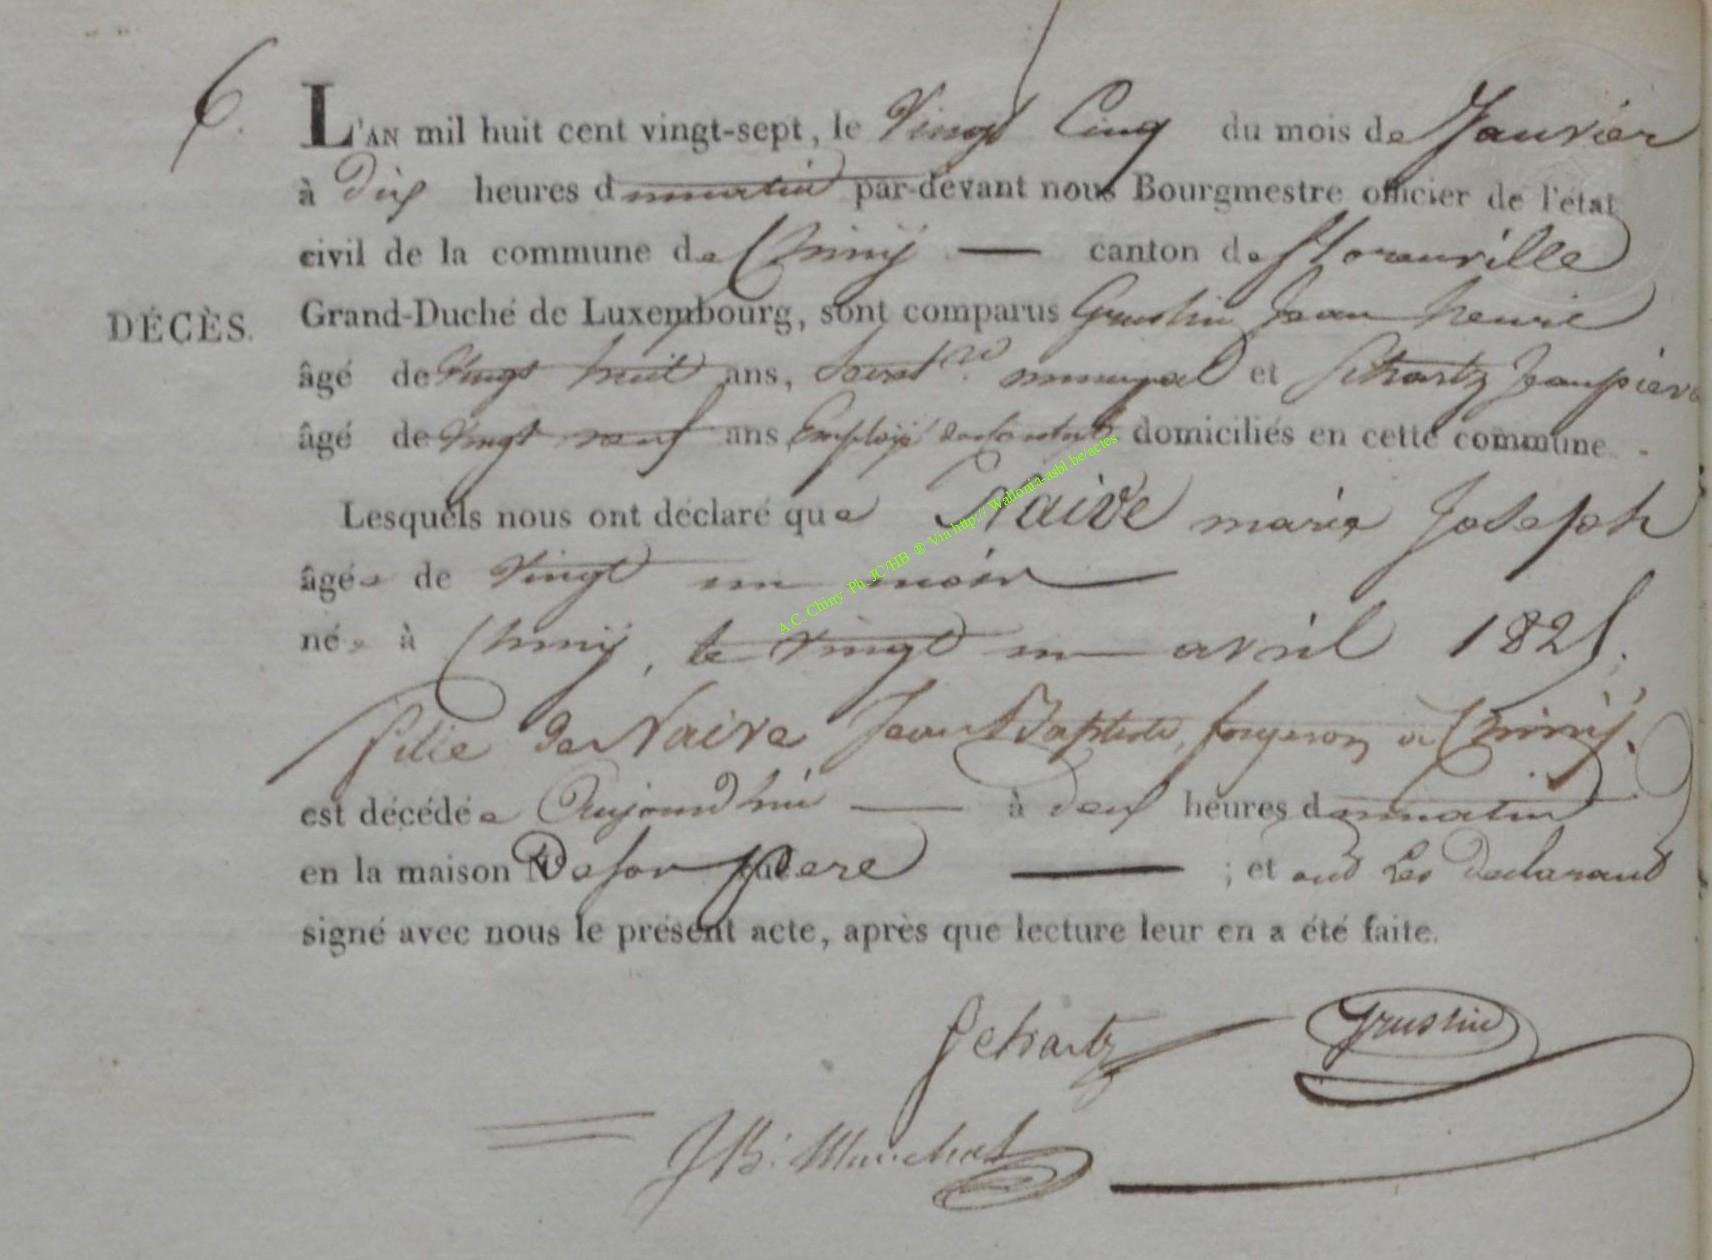 6.
L'AN mil huit cent vingt-sept, le Vingt Cinq du mois de Janvier
à dix heures du matin par-devant nous Bourgmestre officier de l'état
civil de la commune de Chiny — canton de florenville
DÉCÈS.
Grand-Duché de Luxembourg, sont comparus Grustin Jean henrie
âgé de Vingt huit ans, Secret.re municipal et Schartz Jeanpierre
âgé de Vingt neuf ans Employé domiciliés en cette commune
Lesquels nous ont déclaré que Naive marie Joseph
âgée de Vingt un mois
née à Chiny, le Vingt un avril 1825.
fille de Naive Jean Baptiste, forgeron à Chiny.
est décédée Aujourd'hui — à deux heures du matin
en la maison de son pere — ; et ont les declarant
signé avec nous le présent acte, après que lecture leur en a été faite.
Schartz Grustin
JB. Marechal
A.C. Chiny Ph JC/HB ® Via http://Wallonia-asbl.be/actes